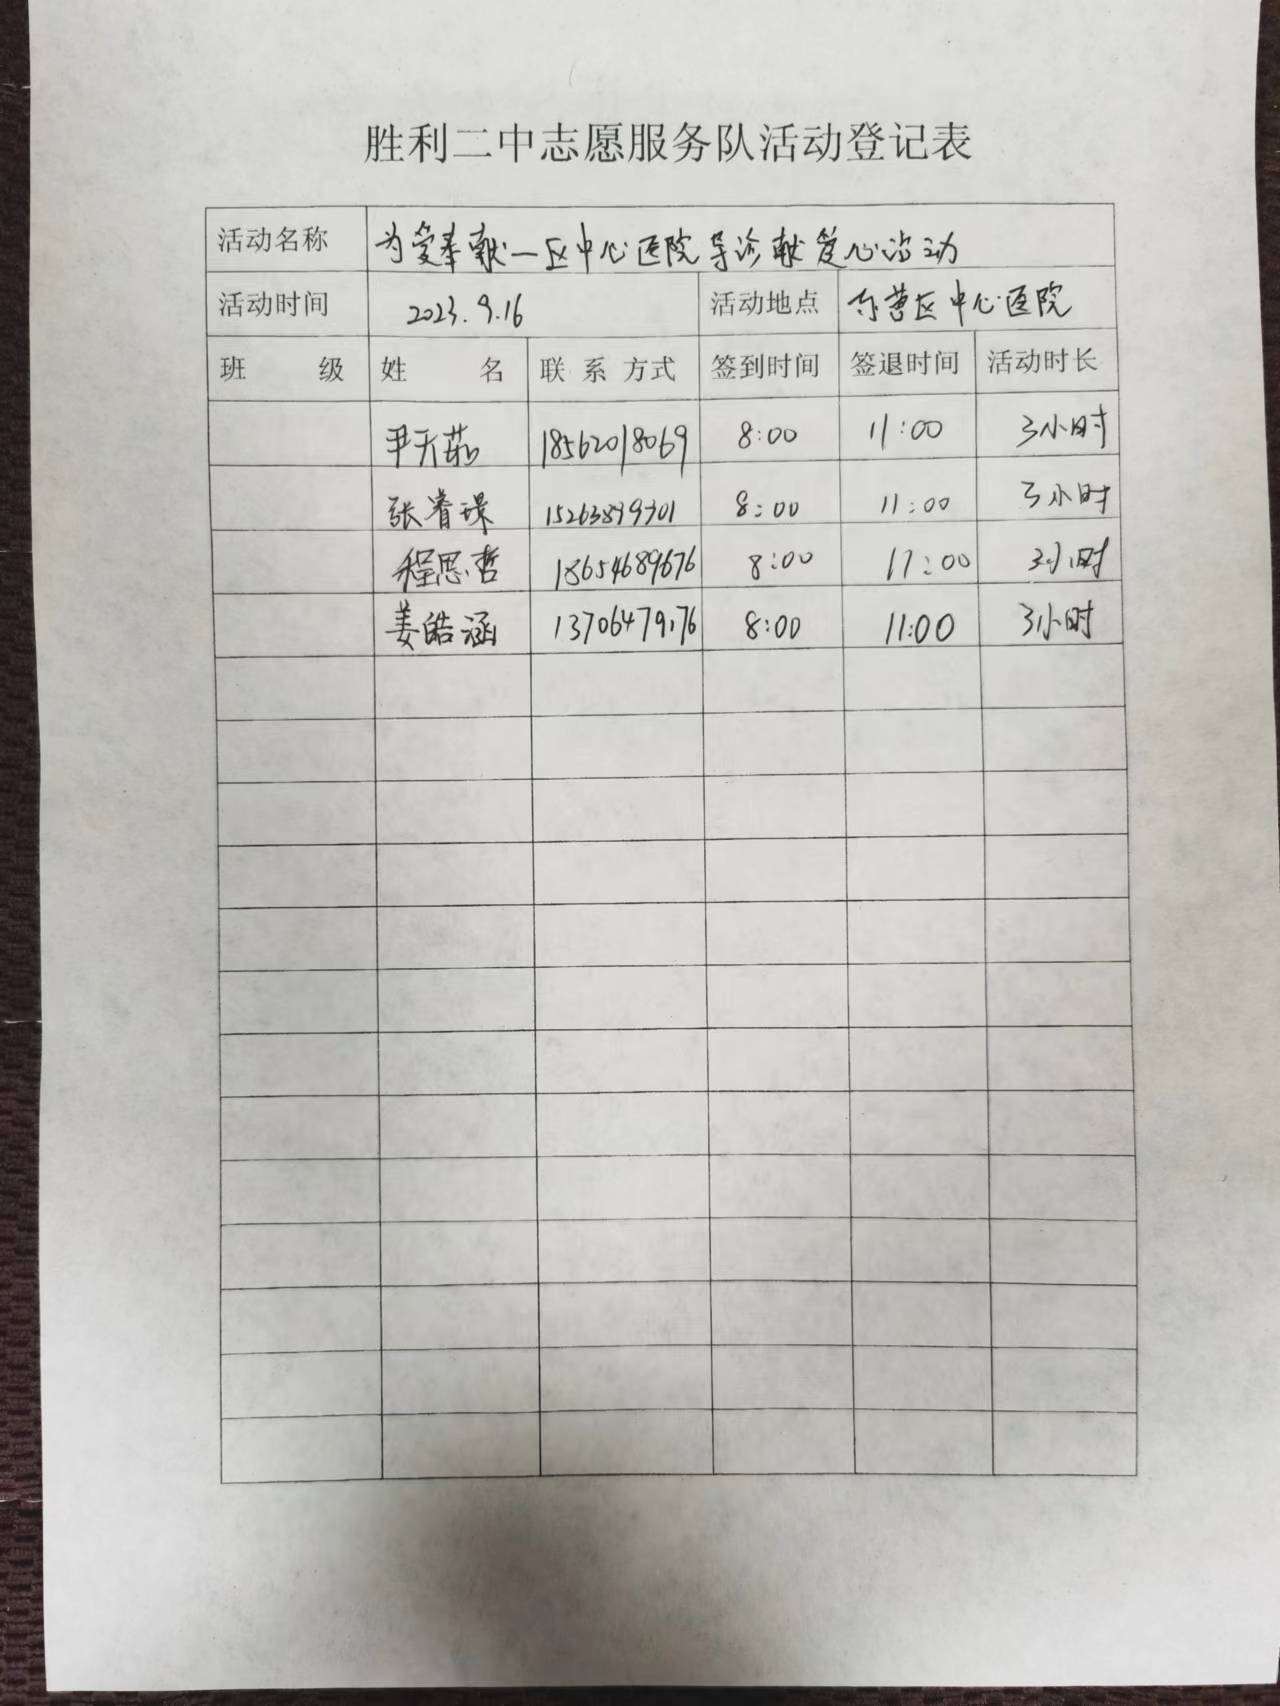 胜利二中志愿服务队活动登记表
活动名称 为爱奉献一区中心医院导诊献爱心活动
活动时间 2023.9.16 活动地点 东营区中心医院
班 级 姓 名 联 系 方式 签到时间 签退时间 活动时长
尹天茹 18562018069 8:00 11:00 3小时
张睿璟 8:00 11:00 3小时
程思哲 18654689676 8:00 11:00 3小时
姜皓涵 13706479176 8:00 11:00 3小时